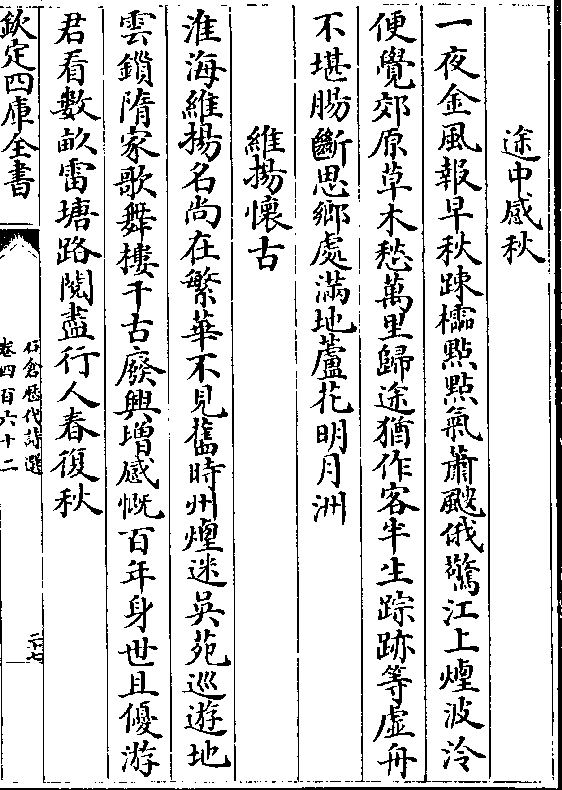 途中感秋
一夜金風報早秋踈櫺㸃㸃氣蕭颼俄驚江上煙波冷
便覺郊原草木愁萬里歸途猶作客半生踪跡等虚舟
不堪腸斷思鄉處滿地蘆花明月洲
維揚懷古
淮海維揚名尚在繁華不見舊時州煙迷吳苑巡遊地
雲鎖隋家歌舞樓千古廢興增感慨百年身世且優游
君看數畝雷塘路閱盡行人春復秋
欽定四庫全書
石倉歷代詩選
卷四百六十二
二十七